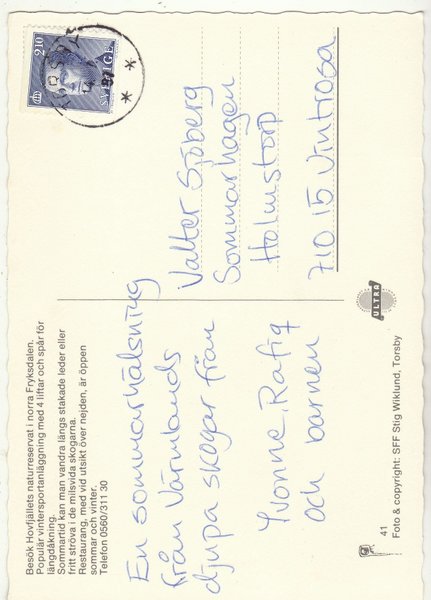 Besök Hovfjällets naturreservat i norra Fryksdalen.
Populär vintersportanläggning med 4 liftar och spår för
längdåkning.
Sommartid kan man vandra längs stakade leder eller
fritt ströva i de milsvida skogarna.
Restaurang, med vid utsikt över nejden, är öppen
sommar och vinter.
Telefon 0560/311 30
En sommarhälsning
från Värmlands
djupa skogar från
Yvonne, Rafig
och barnen
SVERIGE
2.10
Valter Sjöberg
Sommarhagen
Holmstorp
710 15 Vintrosa
ULTRA
41
Foto & copyright: SFF Stig Wiklund, Torsby